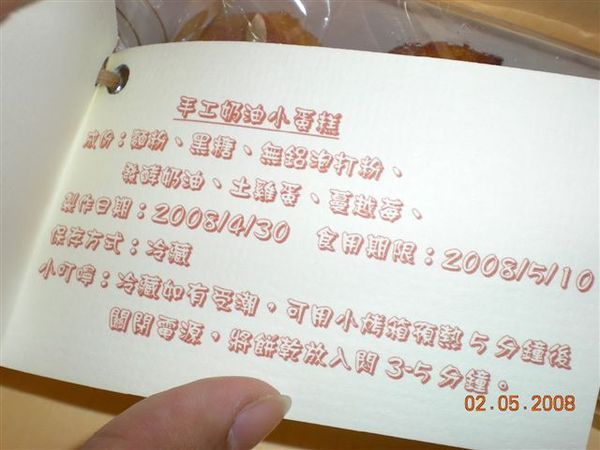 手工奶油小蛋糕
成份：麵粉、黑糖、無鋁泡打粉、
發酵奶油、土雞蛋、蔓越莓、
製作日期：2008/4/30 食用期限：2008/5/10
保存方式：冷藏
小叮嚀：冷藏如有受潮，可用小烤箱預熱5分鐘後
關閉電源，將餅乾放入悶3-5分鐘。
02.05.2008